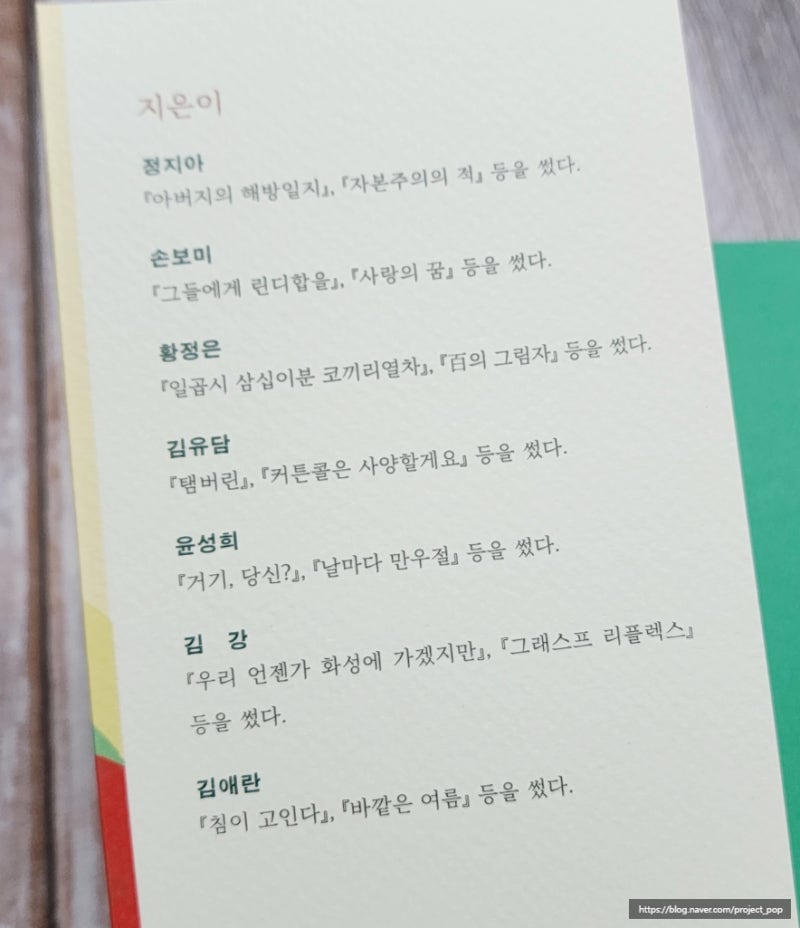 지은이
정지아
『아버지의 해방일지』, 『자본주의의 적』 등을 썼다.
손보미
『그들에게 린디합을』, 『사랑의 꿈』 등을 썼다.
황정은
『일곱시 삼십이분 코끼리열차』, 『百의 그림자』 등을 썼다.
김유담
『탬버린』, 『커튼콜은 사양할게요』 등을 썼다.
윤성희
『거기, 당신?』, 『날마다 만우절』 등을 썼다.
김 강
『우리 언젠가 화성에 가겠지만』, 『그래스프 리플렉스』
등을 썼다.
김애란
『침이 고인다』, 『바깥은 여름』 등을 썼다.
https://blog.naver.com/project_pop